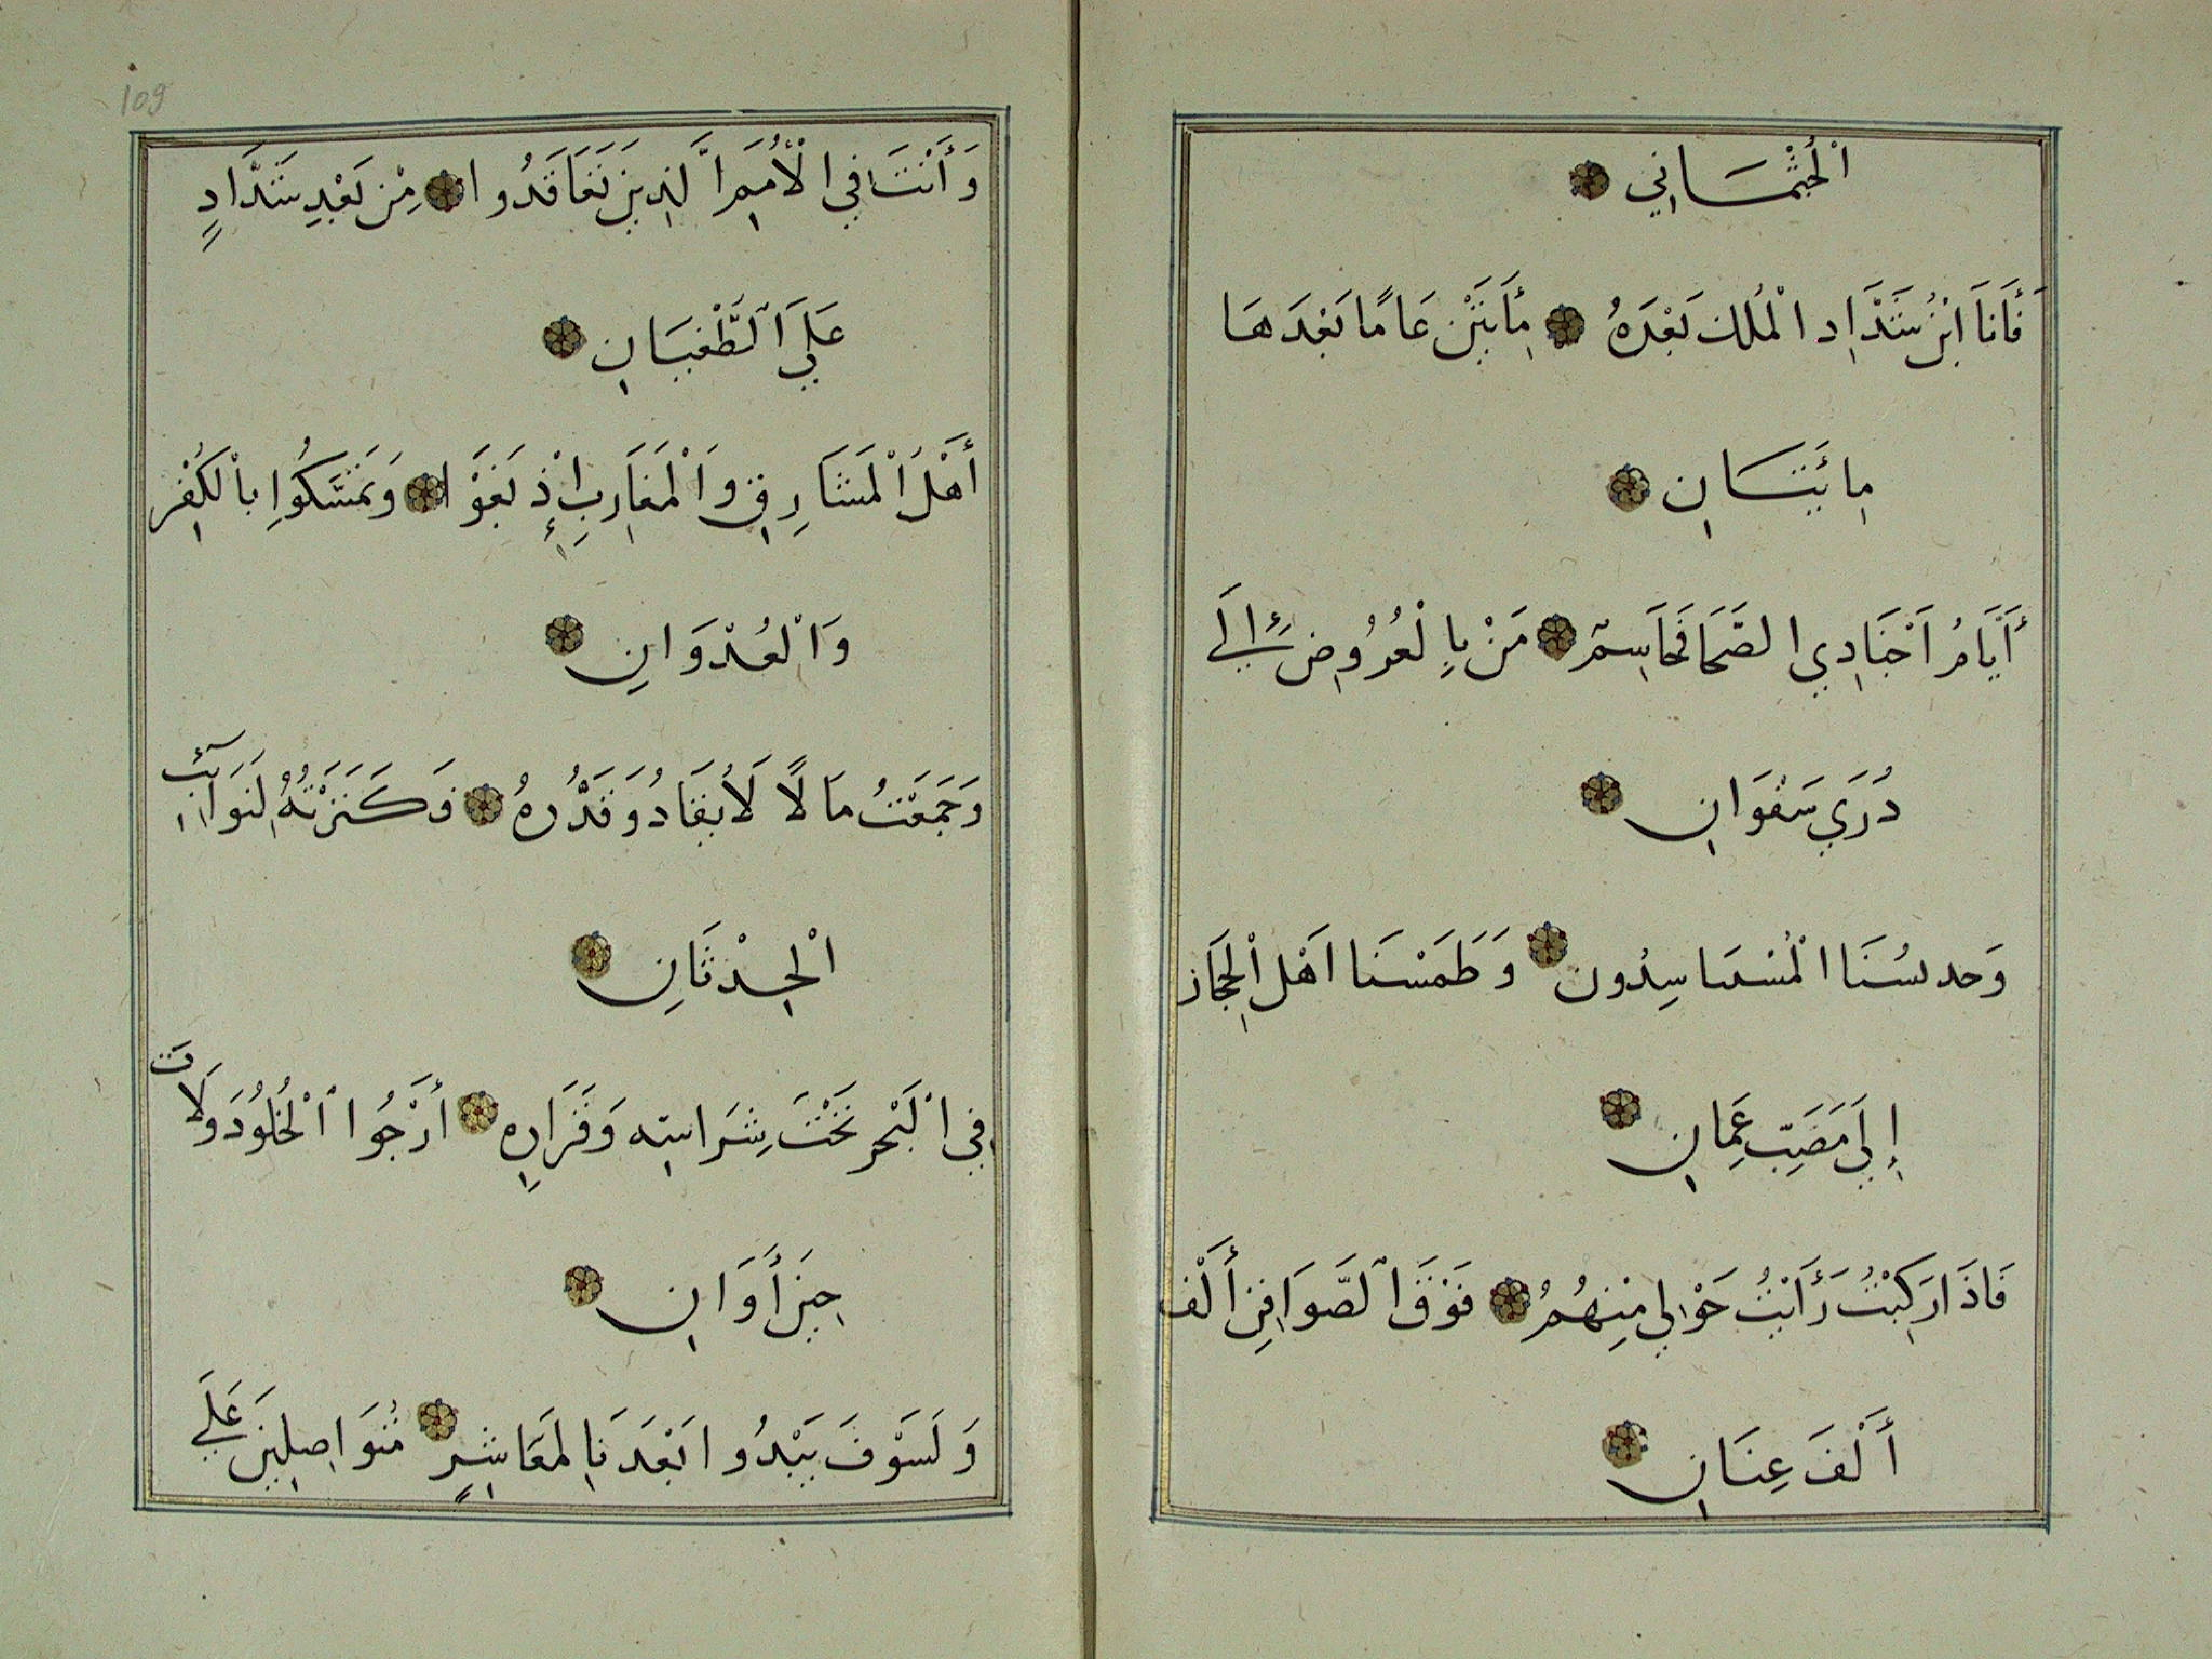 الْجُثْمَانِي
فَأَنَا ابْنُ شَدَّادِ الْمُلك بَعْدَهُ مِأَتَيْن عَامًا بَعْدَهَا
مِائَتَانِ
أَيَّامُ اَجْنَادِي الصَّحَا فَحَاسِمٌ مَنْ بِالْعُرُوضِ إِلَى
دُرَي سَفَوَانِ
وَحدسُنَا وَطَمَسْنَا اَهْلَ الْحِجَاز
إِلَى مَصَبِّ عِمَانِ
فَاذَا رَكِبْتُ رَأَيْتُ حَوْلِي مِنْهُمُ فَوْقَ الصَّوَافِنِ أَلْف
أَلْفَ عِنَانِ
109
وَأَنْتَ فِي الْأُمَمِ الَّذِينَ تَعَاقَدُوا مِنْ بَعْدِ شَدَّادٍ
عَلَى الطُّغْيَانِ
أَهْلُ الْمَشَارِقِ وَالْمَغَارِبِ إِذْ بَغَوْا وَتَمَسَّكُوا بِالْكُفْرِ
وَالْعُدْوَانِ
وَجَمَعْتُ مَالًا لَا يُقَادُ وَقَدْرُهُ فَكَنَزْتُهُ لِنَوَائِبِ
الْحِدْثَانِ
فِي الْبَحْرِ تَحْتَ وَقَرَارِهِ أَرْجُوا الْخُلُودَ وَلَاتَ
حِينَ أَوَانِ
وَلَسَوْفَ يَبْدُوا بَعْدَنَا لِمَعَاشِرٍ مُتَوَاصِلِينَ عَلَى